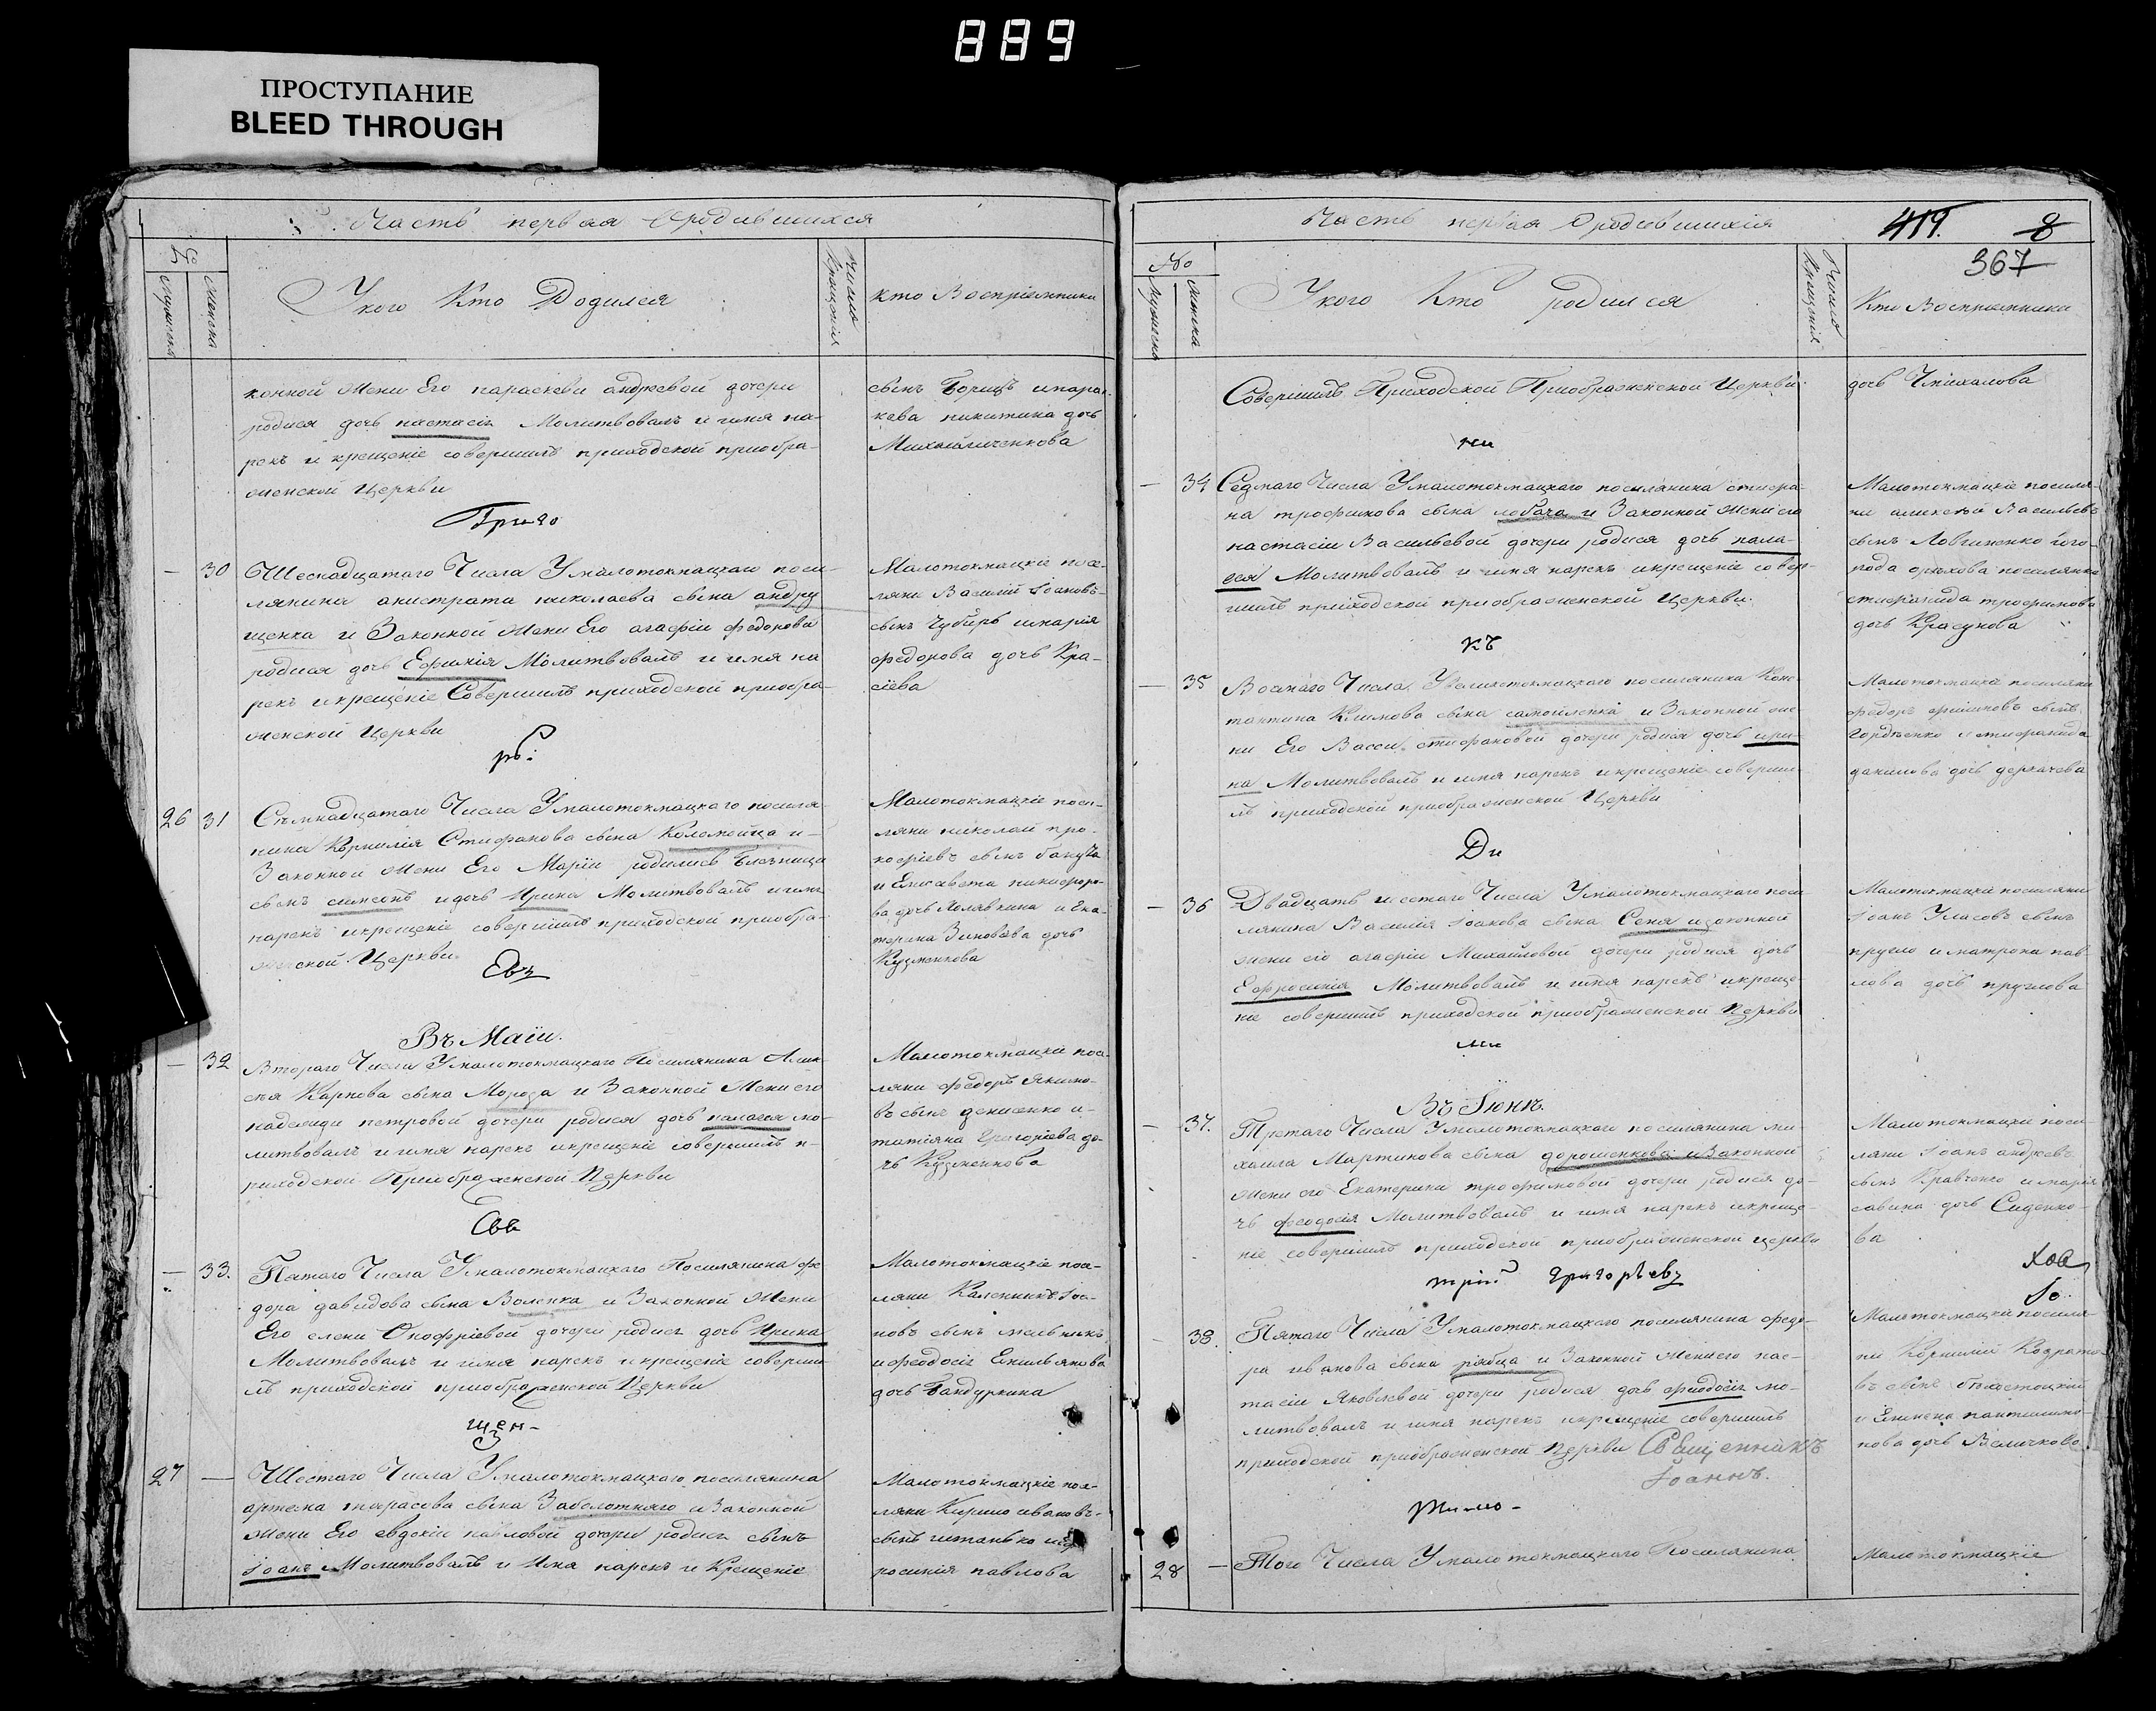 889
ПРОСТУПАНИЕ
BLEED THROUGH
Часть первая О родившихся
Мужеска
Женска
У кого Кто Родился
Число Крещения
кто Восприемники
конной жени Его параскеви андреевой дочери
родися дочь настасія Молитвовалъ и имя на-
рекъ и крещеніе совершилъ приходской приобра-
женской Церкви
сынъ и парас-
кева никитина дочь
Михайличенкова
Григо
30
Шеснадцатаго Числа У малотокмацкаго поси-
лянина анистрата николаева сына андру
щенка и Законной жени Его агафіи федорова
родися дочь Ефимія Молитвовалъ и имя на
рекъ и крещеніе Совершилъ приходской приобра-
женской Церкви
Малотокмацкіе посе-
ляни Василій Іоановъ
сынъ Чубиръ и марія
федорова дочь Кра-
сіева
рь:
26 31
Съмнадцатаго Числа У малотокмацкаго посиля-
нина Корнилія Стифанова сына Коломойца и-
Законной жени Его Маріи родились Близнеци
сынъ симеонъ и дочь Ирина Молитвовалъ и имя
нарекъ и крещеніе совершилъ приходской приобра-
женской Церкви
Малотокмацкіе поси-
ляни николай про-
кофіевъ сынъ
и Елисавета никифоро-
ва дочь и Ека-
терина Зиновіева дочь
Кузменкова
Евъ
Въ Маіи.
32
Втораго Числа У малотокмацкаго Посилянина Алик-
сѣя Карпова сына Мороза и Законной Жени его
надежди петровой дочери родися дочь палагея мо-
литвовалъ и имя нарекъ и крещеніе совершилъ п-
риходской Приображенской Церкви
Малотокмацкіе посе-
ляни федоръ Якимо-
въ сынъ денисенко и-
татіяна Григоріева до-
чь Кузменкова
Евъ
33.
Пятаго Числа У малотокмацкаго Посилянина фе
дора давидова сына Воленка и Законной Жени
Его елени Онофріевой дочери родися дочь Ирина
Молитвовалъ и имя нарекъ и крещеніе соверши-
лъ приходской приображенской Церкви
Малотокмацкіе посе-
ляни Калениикъ Іоа-
новъ сынъ мельникъ
и феодосія Емильянова
дочь Бандуркина
щен-
27
Шестаго Числа У малотокмацкаго посилянина
артема тарасова сына Заболотняго и Законной
жени Его евдокіи павловой дочери родися сынъ
іоанъ Молитвовалъ и Имя нарекъ и Крещеніе
Малотокмацкіе посе-
ляни Кирило ивановъ-
сынъ
росинія павлова
Часть первая О родившихся
419. 8
367
№
Мужеска
Женска
У кого Кто родился
Число Крещенія
Кто Восприемники
Совершилъ Приходской Приображенской Церкви
дочь Чмихалова
ни
34
Седмаго Числа У малотокмацкаго посилянина стифа-
на трофимова сына лобача и Законной жени его
настасіи Васильевой дочери родися дочь пала-
гея Молитвовалъ и имя нарекъ и крещеніе совер-
шилъ приходской приображенской Церкви.
Малотокмацкіе посиля-
ни алиексѣй Васильевъ
сынъ Ловгиненко і го-
рода орѣхова посилянка
стифанида трофимова
дочь Красунова
къ
35
Восмаго Числа У великотокмацкаго посилянина Конс-
тантина Климова сына самойленка и Законной же
ни Его Васси стифановой дочери родися дочь ири-
на Молитвовалъ и имя нарекъ и крещеніе соверши-
лъ приходской приображенской Церкви
Малотокмацкіе посиляни
федоръ сынъ
Гордѣенко и стифанида
данилова дочь деркачева
Ди
36
Двадцать шестаго Числа У малотокмацкаго поси-
лянина Василія Іоакова сына Сеня и законной
жени его агафіи Михайловой дочери родися дочь
Ефросинія Молитвовалъ и имя нарекъ и креще-
ніе совершилъ приходской приображенской Церкви
Малотокмацкіе посиляни
Іоанъ Уласовъ сынъ
кругло и матрона пав-
лова дочь круглова
Въ Іюнѣ.
37.
Третаго Числа У малотокмацкаго посилянина ми-
хаила Мартинова сына дорошенкова и Законной
Жени его Екатерини трофимовой дочери родися до-
чь феодосія Молитвовалъ и имя нарекъ и креще-
ніе совершилъ приходской приображенской церкви
Малотокмацкіе поси-
ляни Іоанъ андреевъ
сынъ Кравченко и марія
савина дочь Сиденко-
ва
Григорьевъ
Хов
Іо.
38.
Пятаго Числа У малотокмацкаго посилянина федо-
ра иванова сына рябца и Законной Жени его нас-
тасіи Яковлевой дочери родися дочь феодосія мо-
литвовалъ и имя нарекъ и крещеніе совершилъ
приходской приображенской церкви Священникъ
Іоаннъ.
Малотокмацкіе посиля-
ни Корнилій Кондрато-
въ сынъ
и Елимена пантилимо-
нова дочь Величкова
Тимо-
28
Того Числа У малотокмацкаго Посилянина
Малотокмацкіе